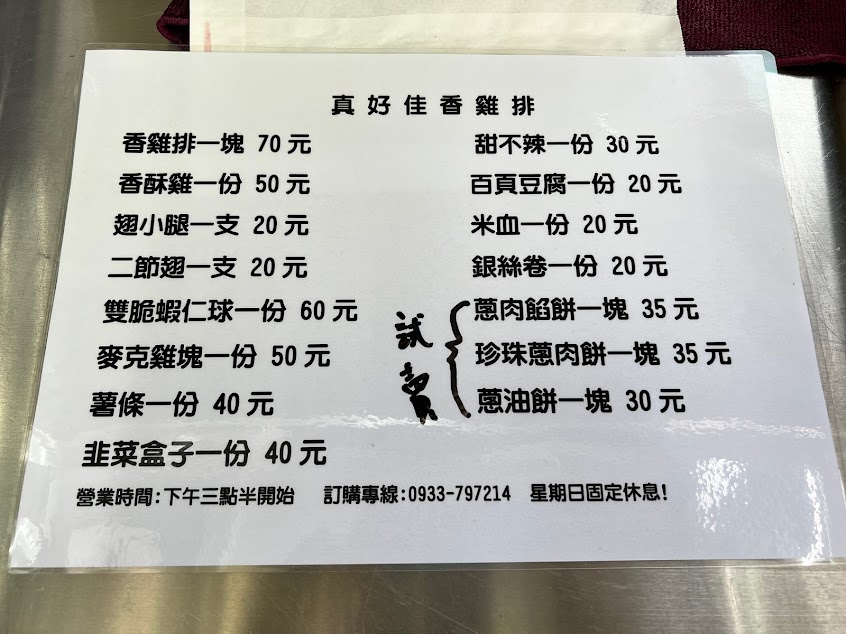 真好佳香雞排
香雞排一塊 70 元
香酥雞一份 50 元
翅小腿一支 20 元
二節翅一支 20 元
雙脆蝦仁球一份 60 元
麥克雞塊一份 50 元
薯條一份 40 元
韭菜盒子一份 40 元
甜不辣一份 30 元
百頁豆腐一份 20 元
米血一份 20 元
銀絲卷一份 20 元
試賣
蔥肉餡餅一塊 35 元
珍珠蔥肉餅一塊 35 元
蔥油餅一塊 30 元
營業時間:下午三點半開始 訂購專線:0933-797214 星期日固定休息!